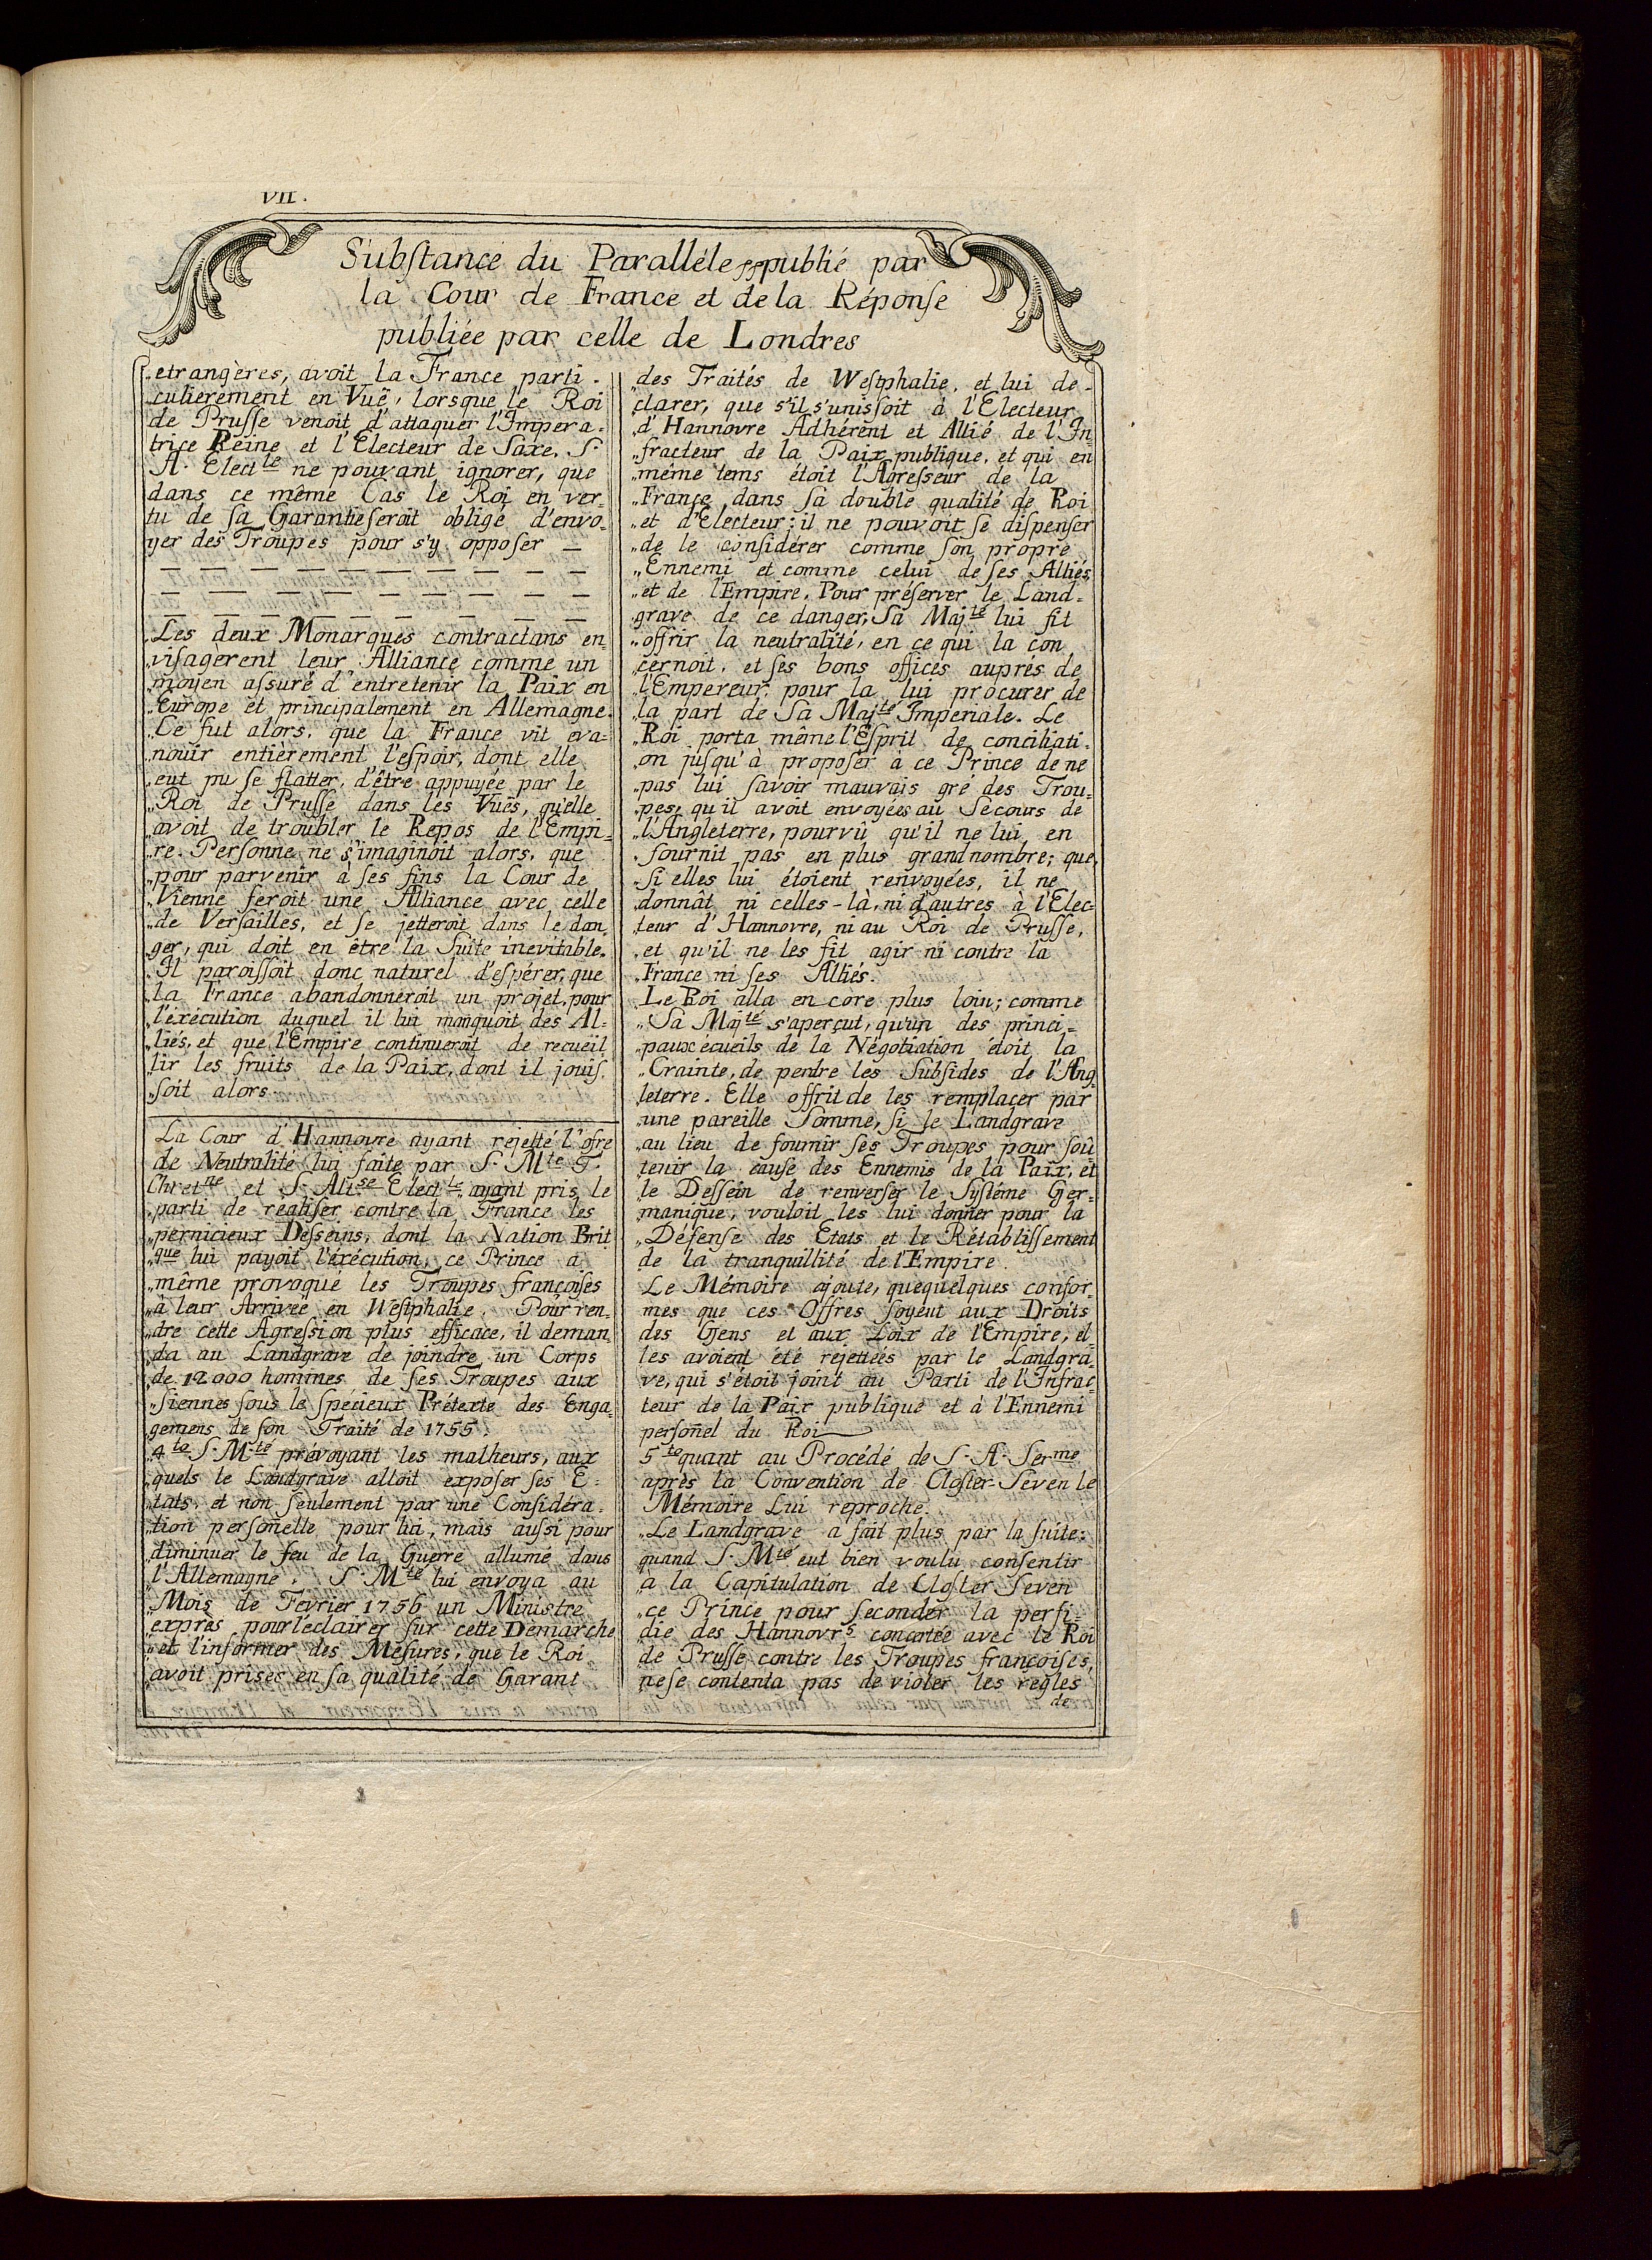 VII.
Substance du Paralléle publié par
la Cour de France et de la Réponse
publiée par celle de Londres
„etrangères, avoit la France parti-
culierement en Vuë, lorsque le Roi
de Prusse venoit d'attaquer l'Impera-
trice Reine et l'Electeur de Saxe, S.
A. Elect.le ne pouvant ignorer, que
dans ce même Cas le Roi en ver-
tu de sa Garantie seroit obligé d'envo-
yer des Troupes pour s'y opposer —
— — — — — — — — — —
— — — — — — — — — —
— — — — — — — — — —
„Les deux Monarques contractans en-
„visagèrent leur Alliance comme un
„moyen assuré d'entretenir la Paix en
„Europe et principalement en Allemagne.
„Ce fut alors, que la France vit eva-
„nouir entièrement l'espoir, dont elle
„eut pu se flatter, d'être appuyée par le
„Roi de Prusse dans les Vuës, qu'elle
„avoit de troubler le Repos de l'Empi-
„re. Personne ne s'imaginoit alors, que
„pour parvenir à ses fins la Cour de
„Vienne feroit une Alliance avec celle
„de Versailles, et se jetteroit dans le dan-
„ger, qui doit en être la Suite inevitable.
„Il paroissoit donc naturel d'espérer, que
„la France abandonneroit un projet, pour
„l'exécution duquel il lui manquoit des Al-
„liés, et que l'Empire continueroit de recueil
„lir les fruits de la Paix, dont il jouis-
„soit alors.
La Cour d'Hannovre ayant rejetté l'ofre
de Neutralité lui faite par S. M.te T.
Chret.ne et S. Alt.se Elect.le ayant pris le
„parti de realiser contre la France les
„pernicieux Desseins, dont la Nation Brit
„que lui payoit l'éxécution, ce Prince a
„même provoqué les Troupes françoises
„à leur Arrivée en Westphalie. Pour ren-
„dre cette Agression plus efficace, il deman
„da au Landgrave de joindre un Corps
„de 12000 hommes de ses Troupes aux
„Siennes sous le specieux Prétexte des Enga-
„gemens de son Traité de 1755.
4.to S. M.té prévoyant les malheurs, aux
„quels le Landgrave alloit exposer ses E-
„tats, et non seulement par une Considéra-
„tion personelle pour lui, mais aussi pour
„diminuer le feu de la Guerre allumé dans
„l'Allemagne. S. M.té lui envoya au
„Mois de Fevrier 1756 un Ministre
„exprès pour l'eclairer sur cette Démarche
„et l'informer des Mesures, que le Roi
„avoit prises en sa qualité de Garant
„des Traités de Westphalie, et lui de-
clarer, que s'il s'unissoit à l'Electeur
„d'Hannovre Adhérent et Allié de l'In-
„fracteur de la Paix publique, et qui en
„même tems étoit l'Agresseur de la
„France dans sa double qualité de Roi
„et d'Electeur: il ne pouvoit se dispenser
„de le considérer comme son propre
„Ennemi et comme celui de ses Alliés
„et de l'Empire. Pour préserver le Land-
„grave de ce danger, Sa Maj.té lui fit
„offrir la neutralité, en ce qui la con
„cernoit, et ses bons offices auprés de
„l'Empereur pour la lui procurer de
„la part de Sa Maj.té Imperiale. Le
„Roi porta même l'Esprit de conciliati-
„on jusqu'à proposer à ce Prince de ne
„pas lui savoir mauvais gré des Trou-
„pes, qu'il avoit envoyées au Secours de
„l'Angleterre, pourvû qu'il ne lui en
„fournit pas en plus grand nombre; que
„si elles lui étoient renvoyées, il ne
„donnât ni celles-là, ni d'autres à l'Elec-
„teur d'Hannovre, ni au Roi de Prusse,
„et qu'il ne les fit agir ni contre la
„France ni ses Alliés.
„Le Roi alla encore plus loin; comme
„Sa Maj.té s'aperçut, qu'un des princi-
„paux ecueils de la Négotiation étoit la
„Crainte, de perdre les Subsides de l'Ang
„leterre. Elle offrit de les remplacer par
„une pareille Somme, si le Landgrave
„au lieu de fournir ses Troupes pour soû
„tenir la cause des Ennemis de la Paix, et
„le Dessein de renverser le Systéme Ger-
„manique, vouloit les lui donner pour la
„Défense des Etats et le Rétablissement
„de la tranquillité de l'Empire.
Le Mémoire ajoute, que quelques confor-
mes que ces Offres soyent aux Droits
des Gens et aux Loix de l'Empire, el
les avoient été rejettées par le Landgra-
ve, qui s'étoit joint au Parti de l'Infrac-
teur de la Paix publique et à l'Ennemi
personel du Roi
5.to quant au Procédé de S. A. Ser.me
après la Convention de Closter-Seven le
Mémoire Lui reproche.
„Le Landgrave a fait plus par la suite:
„quand S. M.té eut bien voulu consentir
„à la Capitulation de Closter Seven
„ce Prince pour seconder la perfi-
„die des Hannovr.s concertée avec le Roi
„de Prusse contre les Troupes françoises,
„ne se contenta pas de violer les regles
de